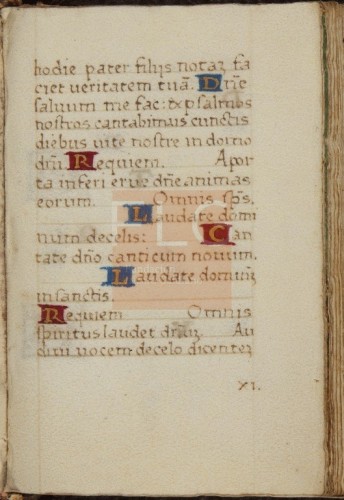 hodie pater filijs notaz fa
ciet veritatem tuā. Dn̄e
saluum me fac: & psalmos
nostros cantabimus cunctis
diebus vite nostre in domo
dn̄i Requiem. A por
ta inferi erue dn̄e animas
eorum. Omnis sp̄s.
Laudate domi
num de celis: Can
tate dn̄o canticum nouum.
Laudate dominū
in sanctis.
Requiem Omnis
spiritus laudet dn̄m Au
diui vocem de celo dicentez
XI.
FLG